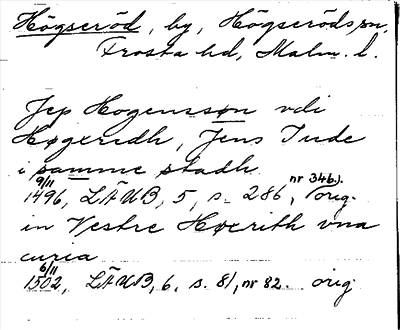 Högseröd, by, Högseröds sn,
Frosta hd, Malm. l.
Jep Hogenssøn vdi
Høgxridh, Jens Jude
i samme stadh
9/11 1496, LÄUB, 5, s. 286, nr 346). orig.
in Vestre Høxrith vna
curia
6/11 1502, LÄUB, 6, s. 81, nr 82. orig